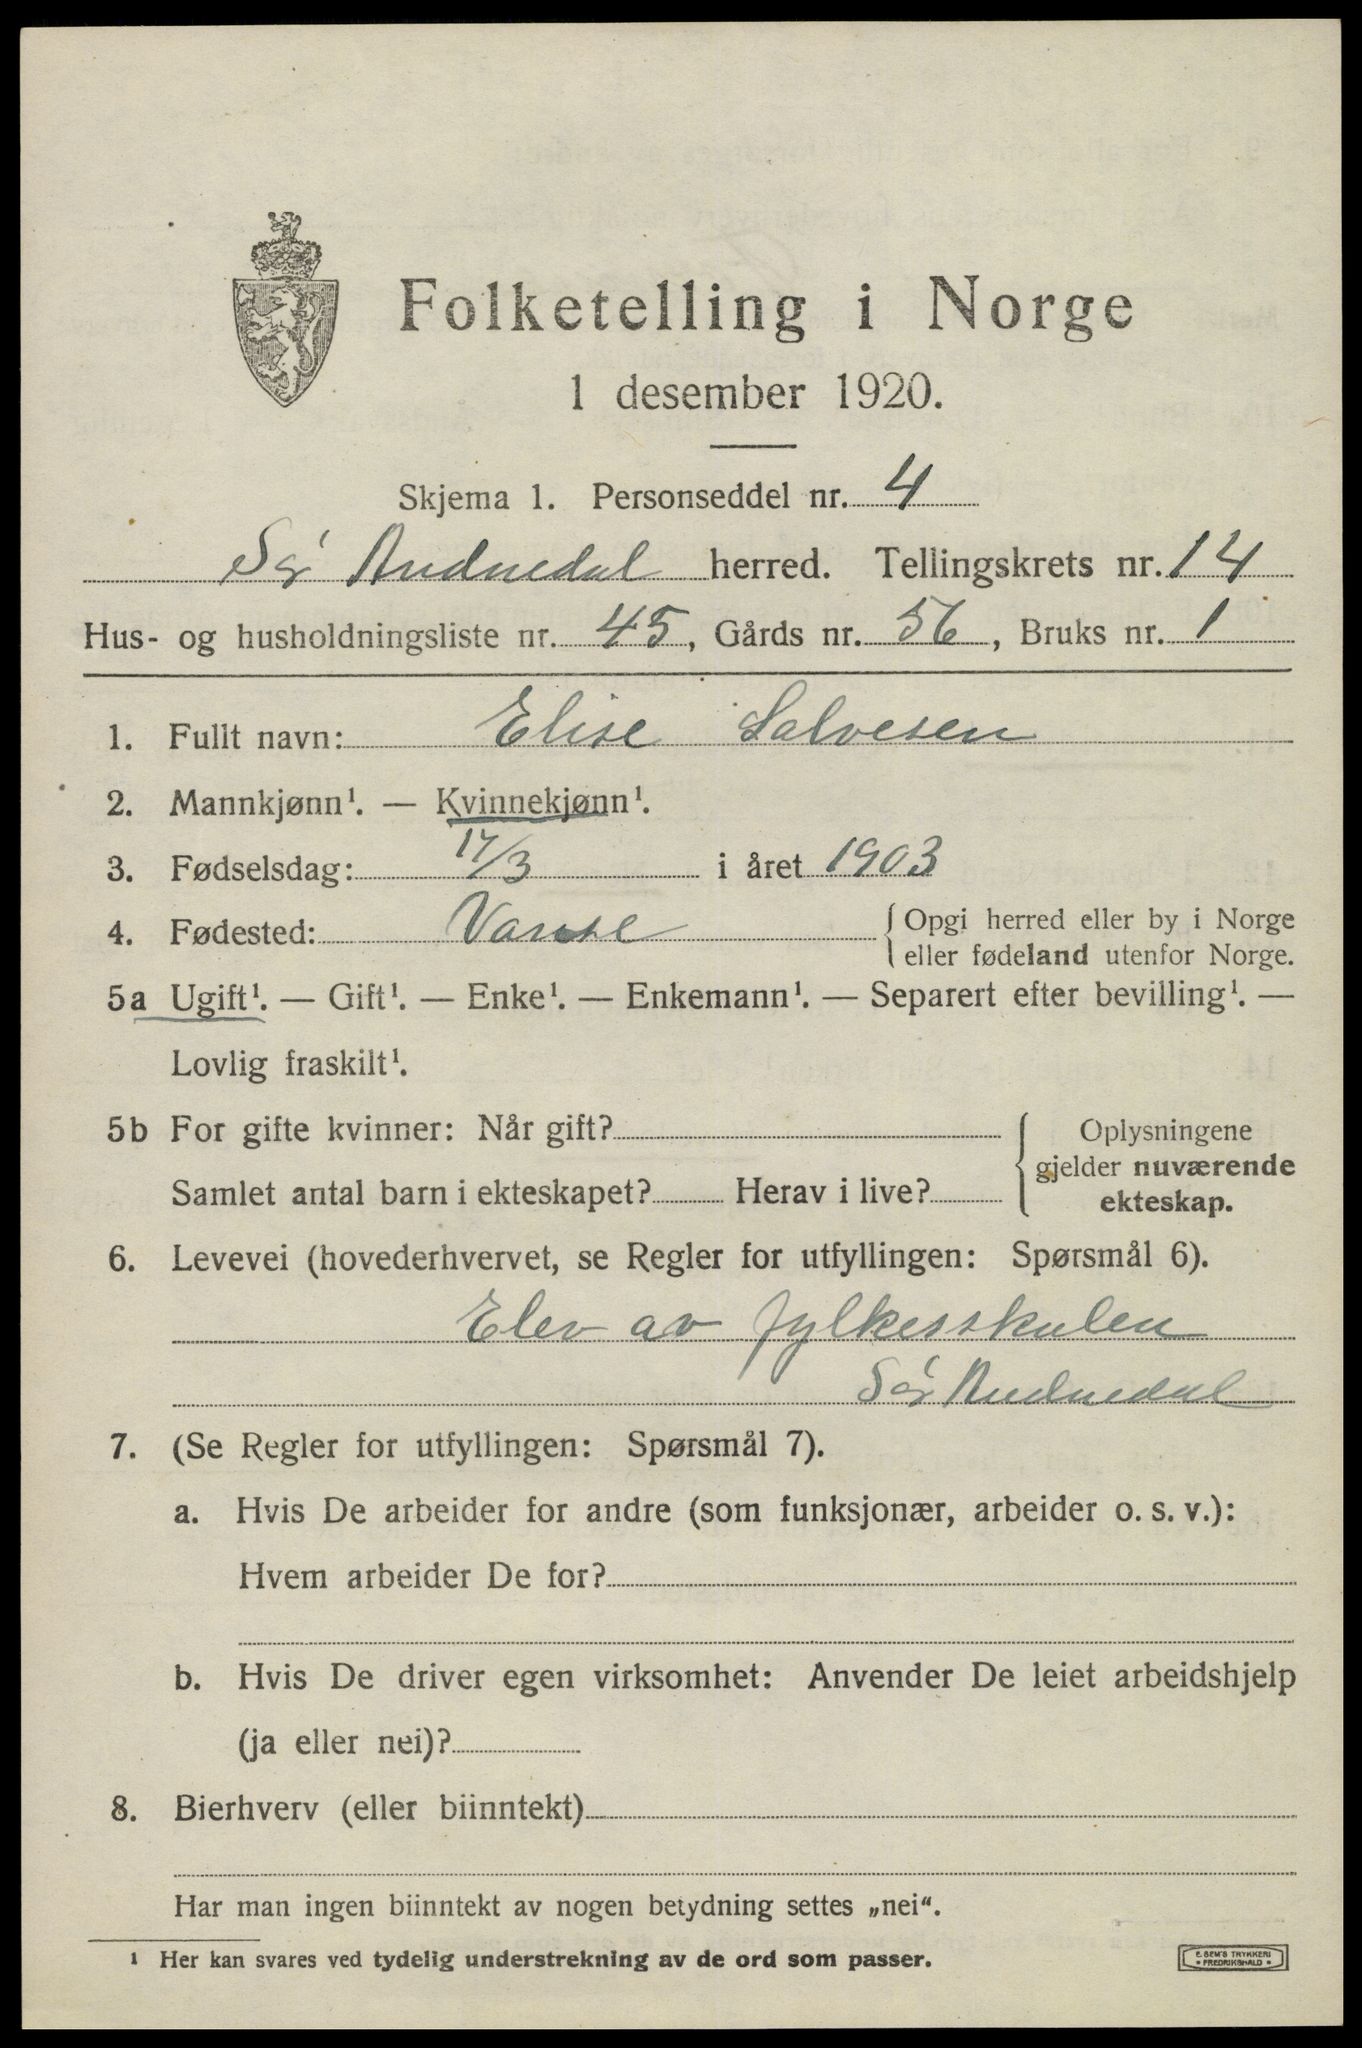 Folketelling i Norge
1 desember 1920.
Skjema 1. Personseddel nr. 4
Sør Audnedal herred. Tellingskrets nr. 14
Hus- og husholdningsliste nr. 45, Gårds nr. 56, Bruks nr. 1
1. Fullt navn: Elise Salvesen
2. Mannkjønn¹. — Kvinnekjønn¹.
3. Fødselsdag: 17/3 i året 1903
4. Fødested: Vanse { Opgi herred eller by i Norge
eller fødeland utenfor Norge.
5a Ugift¹. — Gift¹. — Enke¹. — Enkemann¹. — Separert efter bevilling¹. —
Lovlig fraskilt¹.
5b For gifte kvinner: Når gift?
Samlet antal barn i ekteskapet? Herav i live?
Oplysningene
gjelder nuværende
ekteskap.
6. Levevei (hovederhvervet, se Regler for utfyllingen: Spørsmål 6).
Elev av fylkesskulen
Sør Audnedal
7. (Se Regler for utfyllingen: Spørsmål 7).
a. Hvis De arbeider for andre (som funksjonær, arbeider o. s. v.):
Hvem arbeider De for?
b. Hvis De driver egen virksomhet: Anvender De leiet arbeidshjelp
(ja eller nei)?
8. Bierhverv (eller biinntekt)
Har man ingen biinntekt av nogen betydning settes „nei“.
¹ Her kan svares ved tydelig understrekning av de ord som passer.
E. SEM'S TRYKKERI
• FREDRIKSHALD •